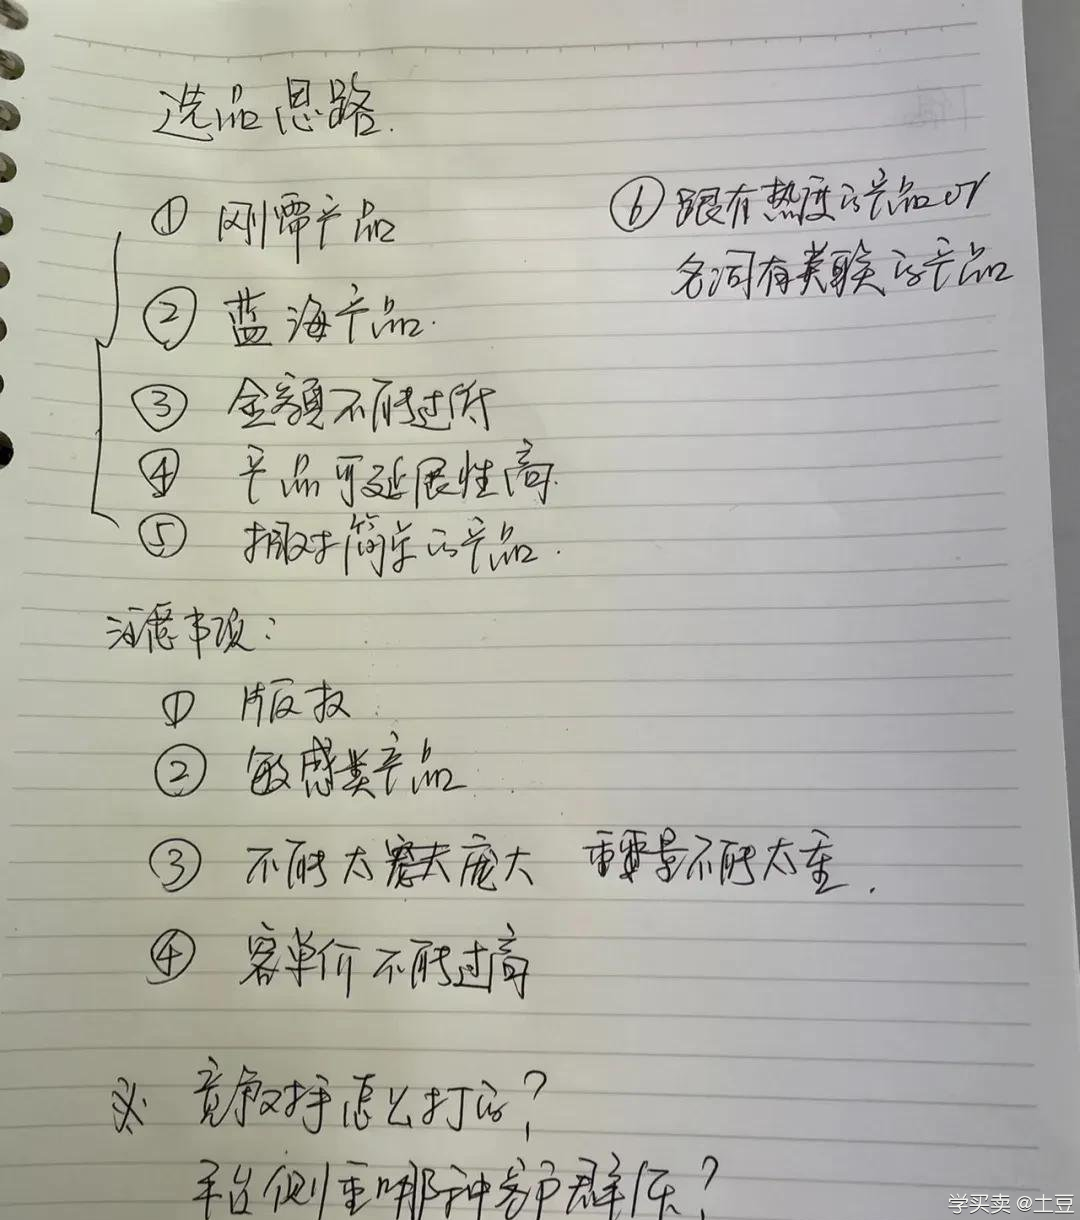 选品思路.
① 刚需产品
② 蓝海产品.
③ 金额不能过低
④ 产品可延展性高.
⑤ 相对简单的产品.
⑥ 跟有热度的产品or
名词有关联的产品
注意事项:
① 版权
② 敏感类产品
③ 不能太庞大 重量不能太重.
④ 客单价不能过高
※ 竞争对手怎么打的?
平台侧重哪种客户群体?
学买卖 @土豆